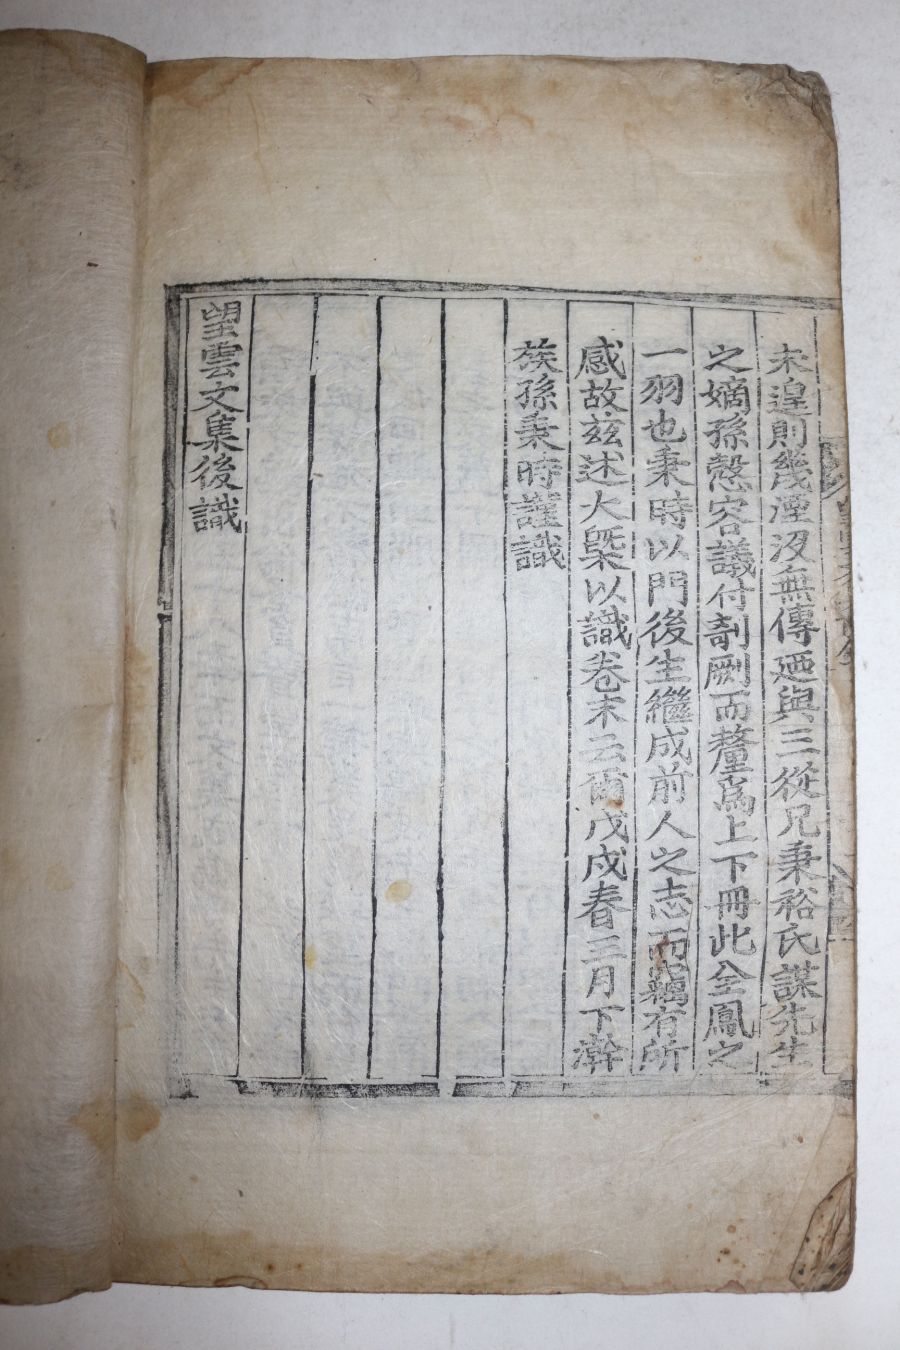 未遑則幾湮沒無傳廼與三從兄秉裕氏謀先生
之嫡孫慤容議付剞劂而釐爲上下冊此全鳳之
一羽也秉時以門後生繼成前人之志而竊有所
感故玆述大槩以識卷末云爾戊戌春三月下澣
族孫秉時謹識
望雲文集後識